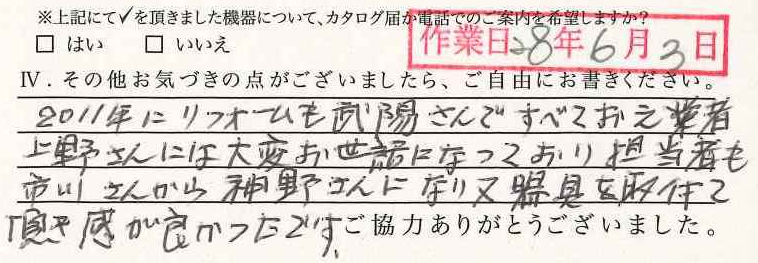 ※上記にて✓を頂きました機器について、カタログ届か電話でのご案内を希望しますか?
□ はい □ いいえ
作業日 28年6月3日
Ⅳ. その他お気づきの点がございましたら、ご自由にお書きください。
2011年にリフォームも武陽さんですべてお元業者
上野さんには大変お世話になっており担当者も
市川さんから神野さんになり又器具を取付て
頂き感が良かったです。
ご協力ありがとうございました。